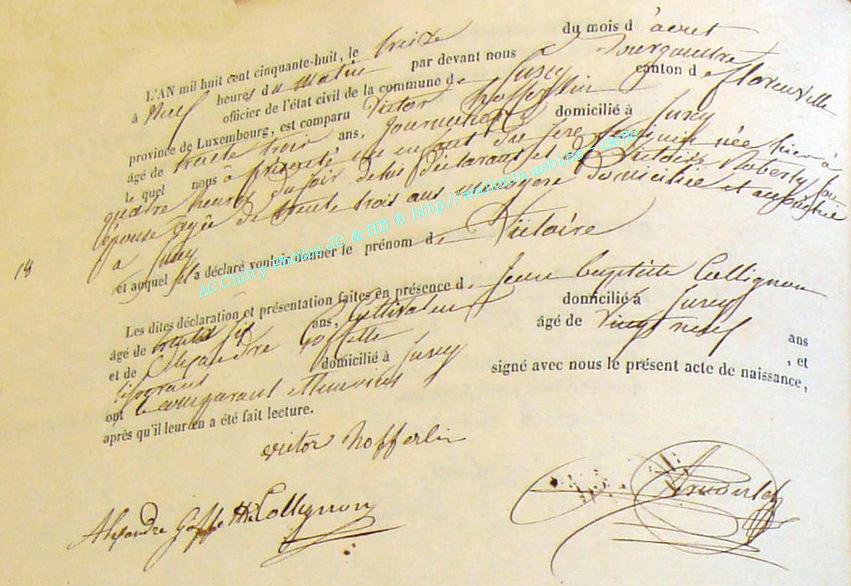 L'AN mil huit cent cinquante-huit, le treize du mois d'aout
à neuf heures du matin par devant nous Bourgmestre
officier de l'état civil de la commune de Suxy canton de florenville
province de Luxembourg, est comparu Victor hofferlin
âgé de trente trois ans, journalier domicilié à Suxy
le quel nous a présenté un enfant du sexe féminin née hier à
quatre heures du soir de lui déclarant et de Victoire Noberty son
épouse agée de trente trois ans ménagère domiciliée
à Suxy
18
et auquel il a déclaré vouloir donner le prénom de Victoire
Les dites déclaration et présentation faites en présence de Jean baptiste Collignon
âgé de trente six ans, Cultivateur domicilié à Suxy
et de Alexandre Goffette âgé de vingt neuf ans
domicilié à Suxy , et
ont le comparant et temoins signé avec nous le présent acte de naissance,
après qu'il leur en a été fait lecture.
victor hofferlin
Alexandre Goffette Collignon
AC Chiny